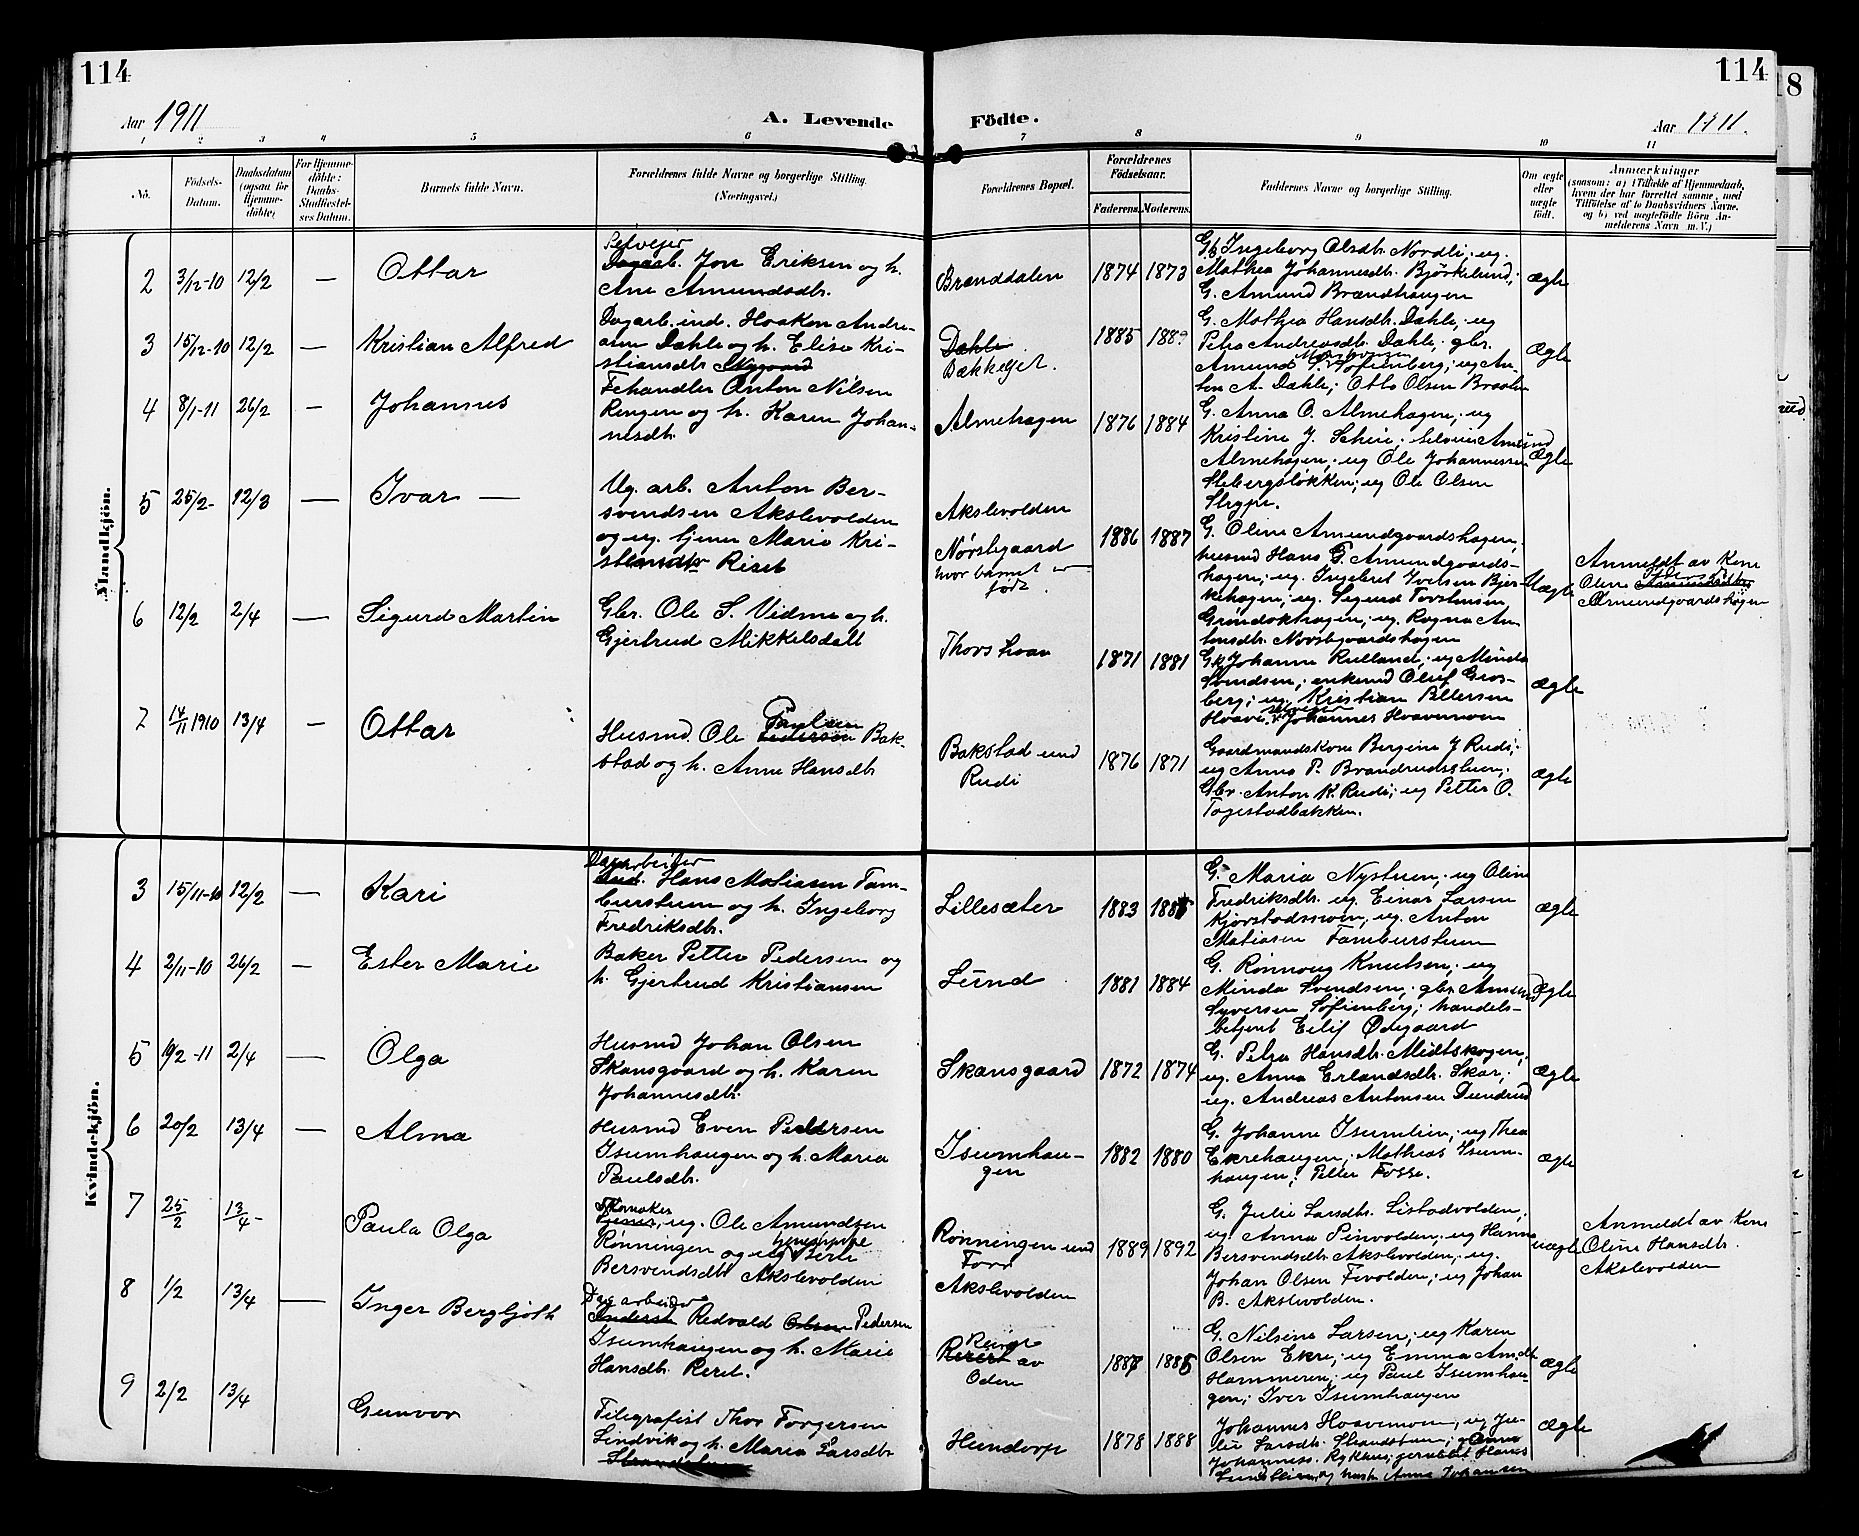 114
114
18
Aar 1911
A. Levende
Födte.
Aar 1911.
1 2 3 4 5 6 7 8 9 10 11
No.
Födsels-
Datum.
Daabsdatum
(ogsaa for
Hjemme-
döbte)
For Hjemme-
döbte:
Daabs-
Stadfæstel-
ses Datum.
Barnets fulde Navn.
Forældrenes fulde Navne og borgerlige Stilling.
(Næringsvei.)
Forældrenes Bopæl.
Forældrenes
Födselsaar.
Faderens.
Moderens.
Faddernes Navne og borgerlige Stilling.
Om ægte
eller
uægte
födt.
Anmærkninger
(saasom: a) i Tilfælde af Hjemmedaab,
hvem der har forrettet samme, med
Tilföielse af to Daabsvidners Navne.
og b) ved uægtefödte Börn An-
melderens Navn m. V.)
Mandkjön.
2 3/12-10 12/2 — Ottar
Selveier
Dagarb. Jon Eriksen og h.
Ane Amundsdtr.
Brænddalen 1874 1873
Gk Ingeborg Olsdtr. Nordli; ug.
Mathea Johannesdtr. Björkelund;
G. Amund Brændhaugen
Ægte
3 15/12-10 12/2 — Kristian Alfred
Dagarb. ind. Haaken Andre-
asen Dahle og h. Elise Kri-
stiansdtr. Nygaard
Dahle
Bækkeljet.
1885
G. Mathea Hansdtr. Dahle; ug
Petra Andreasdtr. Dahle; gbr.
Amund S. Sofienberg; ug An-
ton A. Dahle; Otto Olsen Braaten
Ægte
4 8/1-11 26/2 — Johannes
Fehandler Anton Nilsen
Ringen og h. Karen Johan-
nesdtr.
Almehagen 1876 1884
G. Anna O. Almehagen; ug
Kristine J. Scheie; Selveier Amund
Almehagen; ug Ole Johannessen
Slebergsløkken; ug Ole Olsen
Stryge.
Ægte
5 25/2- 12/3 — Ivar —
Ug. arb. Anton Ber-
svendsen Akslevolden
og ug. tjener Marie Kri-
stiansdtr Riset
Akslevolden
Nørstegaard
hvor barnet er
født.
1886 1887
G. Oline Amundgaardshagen;
husmd Hans G. Amundgaards-
hagen; ug. Ingebret Iversen Bjer-
kehagen; ug. Sigurd Torstensen
Grøndokhagen; ug. Ragna An-
tonsdtr. Norstegaardshagen
Uægte
Anmeldt av Kone
Oline
Amundgaardshagen
6 12/2 2/4 — Sigurd Martin
Gbr. Ole S. Vidme og h.
Gjertrud Mikkelsdatt
Thorshaav 1871 1881
Gk Johanne Rulland; ug Minda
Svendsen; enkemd Oluf Gros-
berg; ug. Kristian Pettersen
Hoave. Selveier Johannes Hoavemoen
Ægte
7 14/11 1910 13/4 — Ottar
Husmd. Ole Paulsen Pedersen Bak-
stad og h. Anne Hansdtr
Bakstad und
Rudi
1876 1871
Gaardmandskone Bergine J Rudi;
ug Anna P. Brandrudsstuen;
Gbr. Anton K. Rudi; ug Petter O.
Togestadbakken.
Ægte
Kvindekjön.
3 15/11-10 12/2 — Kari
Dagarbeider
Ind. Hans Matiasen Tam-
burstuen og h. Ingeborg
Fredriksdtr.
Lillesæter 1883
G. Maria Nystuen; ug Oline
Fredriksdtr. ug. Einar Larsen
Kjorstadsmoen; ug. Anton
Matiasen Tamburstuen
Ægte
4 2/11-10 26/2 — Ester Marie
Baker Petter Pedersen og
h. Gjertrud Kristiansen
Lund 1881 1884
G. Rønnoug Knutsen; ug
Minda Svendsen; gbr. Amund
Syversen Sofienberg; handels-
betjent Eilif Ødegaard
Ægte
5 19/2-11 2/4 — Olga
Husmd Johan Olsen
Skansgaard og h. Karen
Johannesdtr.
Skansgaard 1872 1874
G. Petra Hansdtr. Midtskogen;
ug. Anna Erlandsdtr. Skar;
ug. Andreas Antonsen Dundrud
Ægte
6 20/2 13/4 — Alma
Husmd Even Pedersen
Isumhaugen og h. Maria
Paulsdtr.
Isumhau-
gen
1882 1880
G. Johanne Isumlien; ug Thea
Ekrehaugen; Mathias Isum-
haugen; Petter Fosse.
Ægte
7 25/2 13/4- Paula Olga
Skomaker
Tjener, ug. Ole Amundsen
Rønningen og ug tjenestepige Berte
Bersvendsdtr Akslevolden
Rønningen und
Forr
Akslevolden
1889 1892
G. Julie Larsdtr. Listadvolden;
ug Anna Pinvolden; ug Hanna
Bersvendsdtr. Akslevolden; ug.
Johan Olsen Fivolden; ug Johan
B. Akslevolden.
uægte
Anmeldt av Kone
Oline Hansdtr.
Akslevolden
8 1/2 13/4 — Inger Bergljoth
Dagarbeider
Redvald Olsen Pedersen
Isumhaugen og h. Marie
Hansdtr. Reret.
av
Oden
G. Nilsine Larsen; ug Karen
Olsen Ekre; ug Emma Amdtr
Hammeren; ug Paul Isumhau-
gen; Iver Isumhaugen
Ægte
9 2/2 13/4 Gunvor
Telegrafist Thor Torgersen
Lindvik og h. Maria Larsdtr
Hundorp 1878 1888
Johannes Hoavemoen; ug Ju-
lie Larsdtr. Strandstuen;
Anna Johansen
Ægte